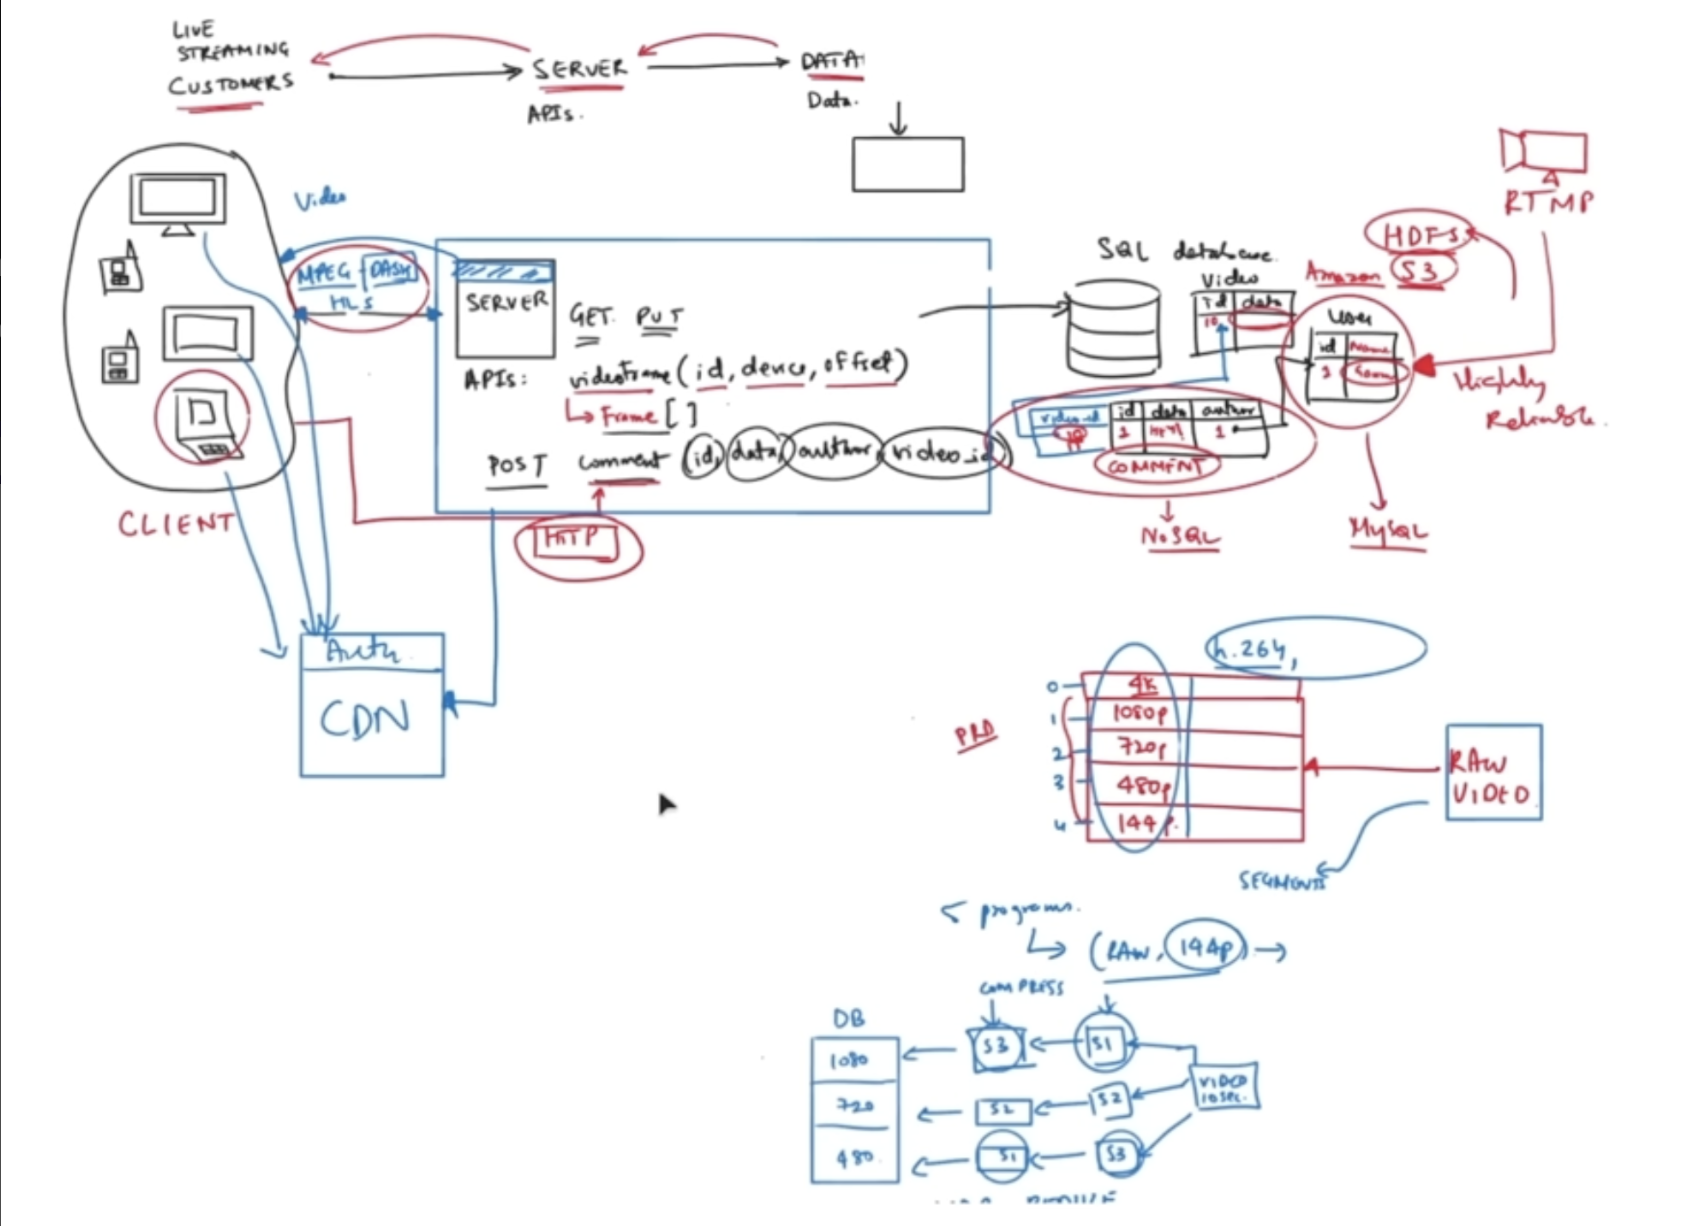 LIVE
STREAMING
CUSTOMERS
SERVER
APIs.
DATA
Data.
Video
MPEG-DASH
HLS
SERVER
GET PUT
APIs: videoFrame (id, device, offset)
Frame []
POST comment (id, data, author, video_id)
HTTP
CLIENT
Auth
CDN
SQL database
Video
id data
10
User
id Name
1
video_id id data author
10 1
COMMENT
NoSQL
MySQL
Amazon S3
HDFS
RTMP
Highly
Reliable.
h.264,
PRD
0 4K
1 1080p
2 720p
3 480p
4 144p
RAW
VIDEO
SEGMENTS
5 programs.
(RAW, 144p)
COMPRESS
DB
1080
720
480
S3 S1
S2 S2
S1 S3
VIDEO
10 sec.